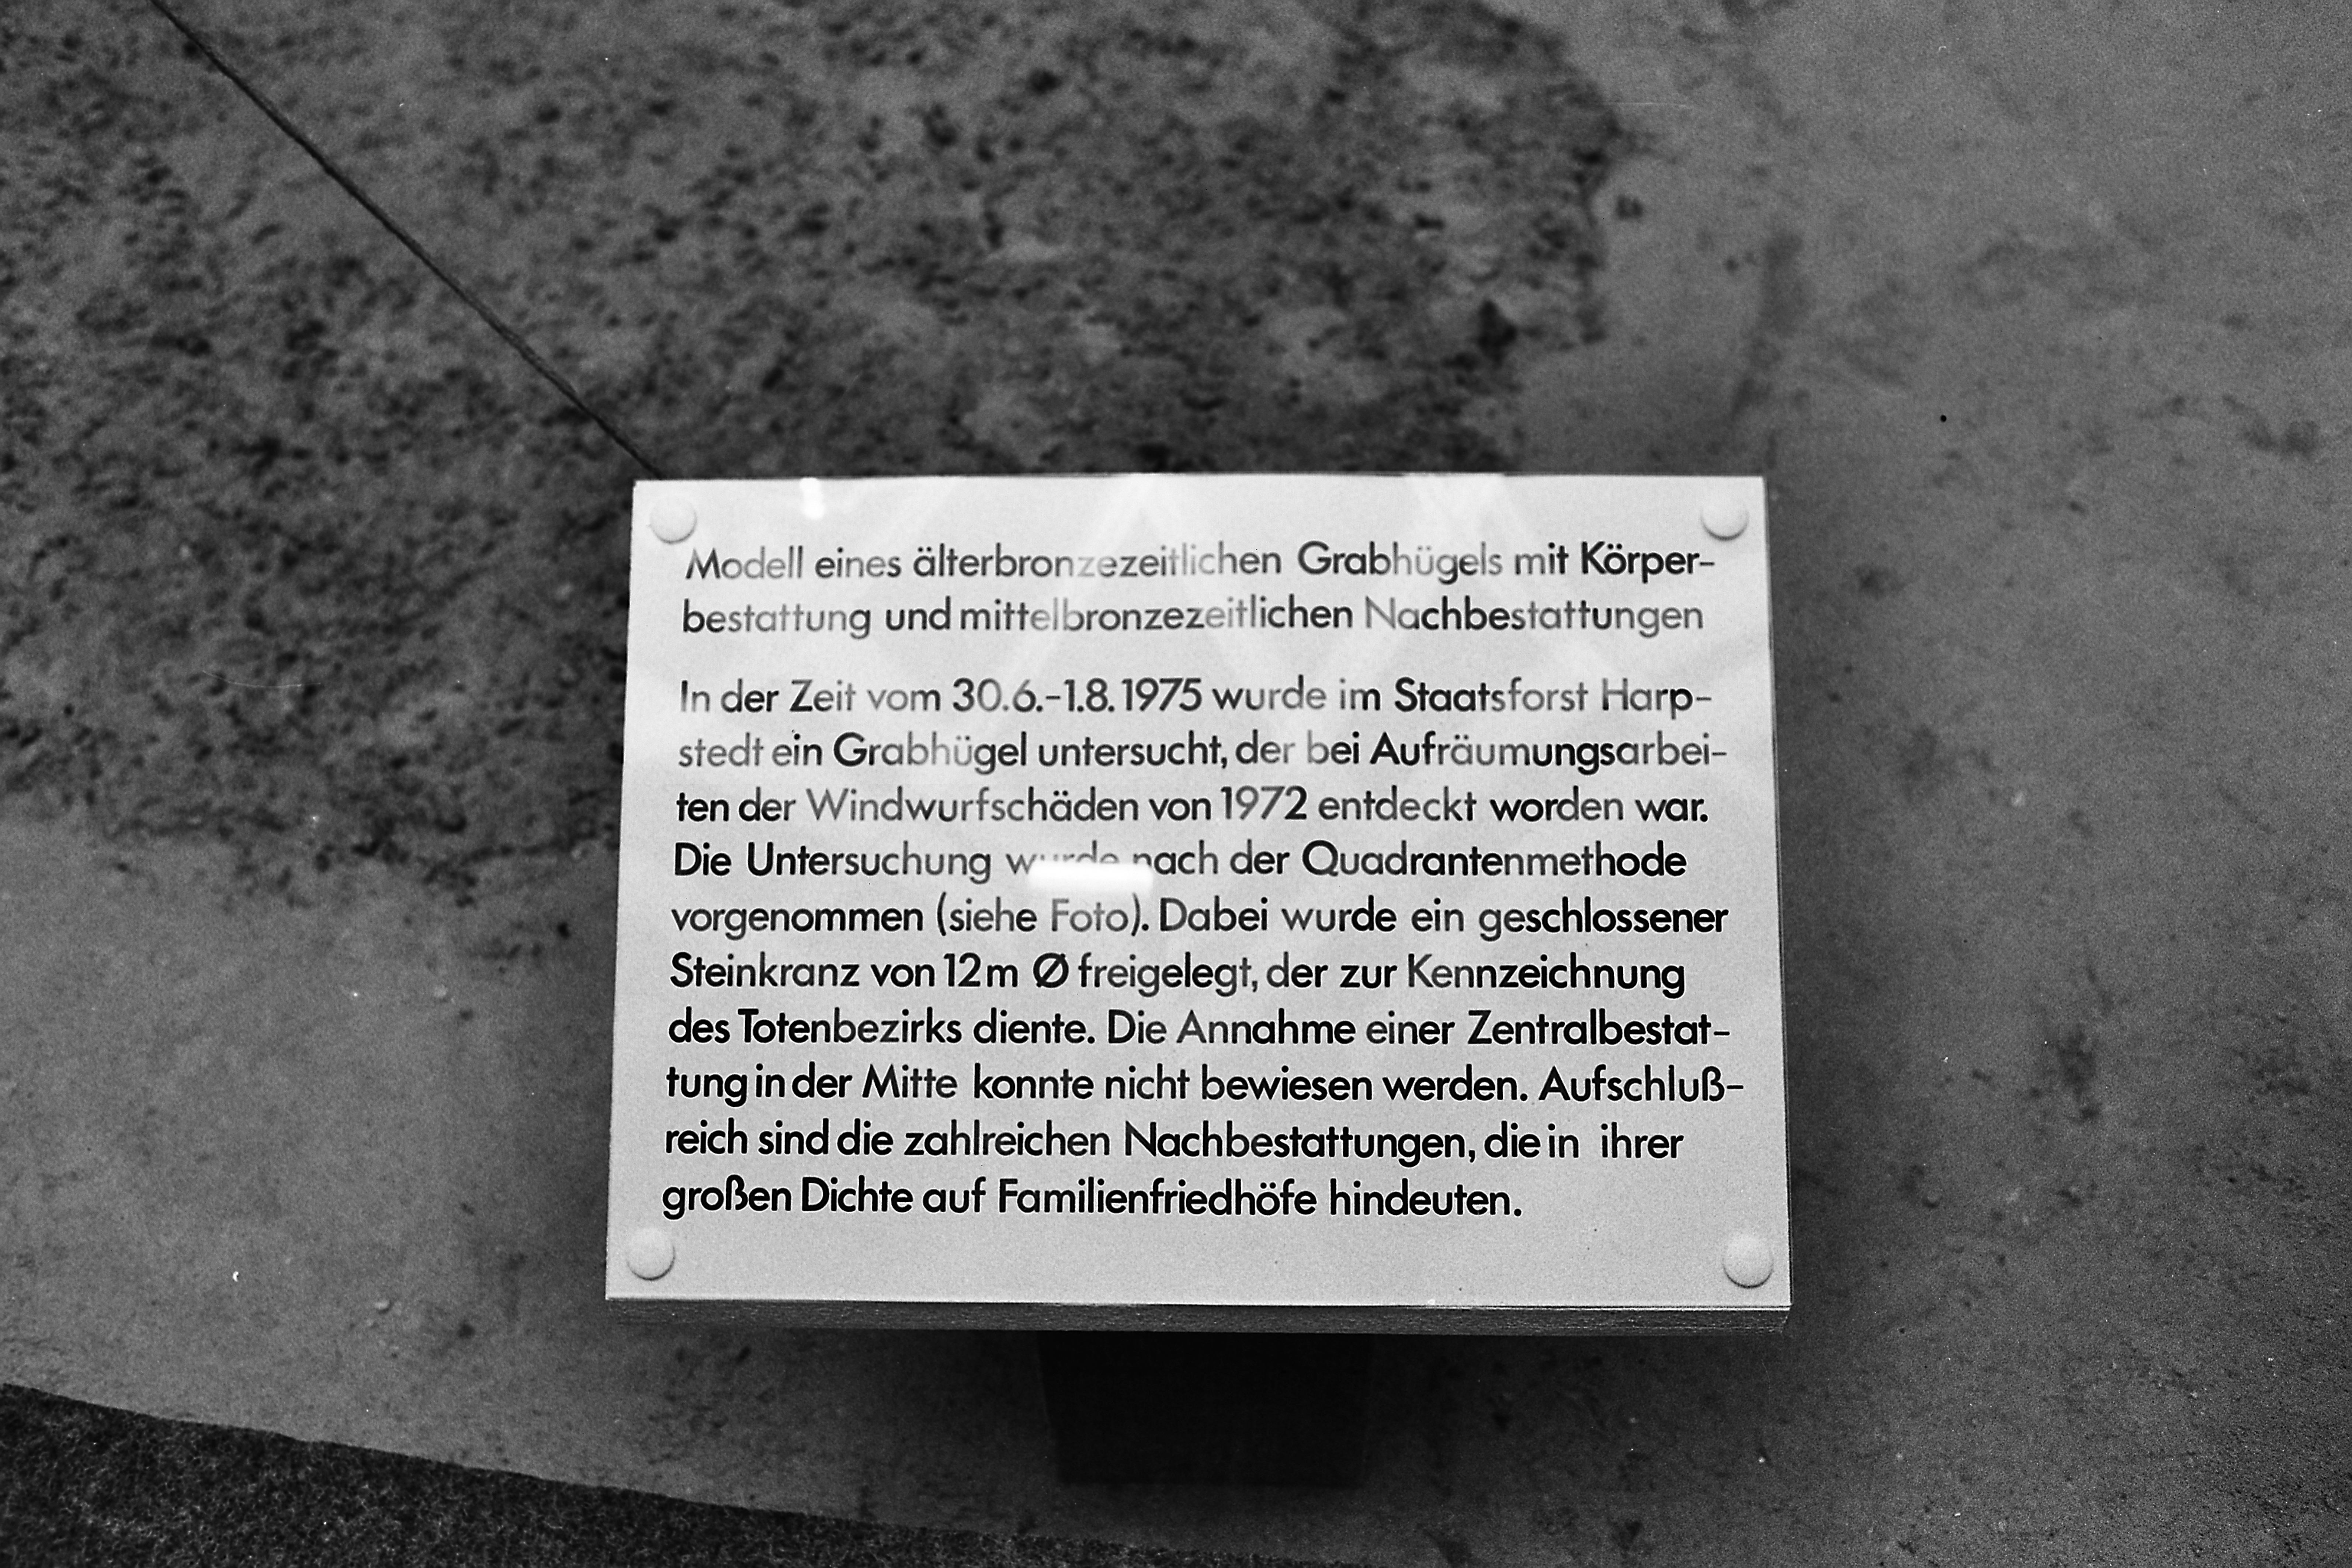 Modell eines älterbronzezeitlichen Grabhügels mit Körper-
bestattung und mittelbronzezeitlichen Nachbestattungen
In der Zeit vom 30.6.-1.8.1975 wurde im Staatsforst Harp-
stedt ein Grabhügel untersucht, der bei Aufräumungsarbei-
ten der Windwurfschäden von 1972 entdeckt worden war.
Die Untersuchung wurde nach der Quadrantenmethode
vorgenommen (siehe Foto). Dabei wurde ein geschlossener
Steinkranz von 12m Ø freigelegt, der zur Kennzeichnung
des Totenbezirks diente. Die Annahme einer Zentralbestat-
tung in der Mitte konnte nicht bewiesen werden. Aufschluß-
reich sind die zahlreichen Nachbestattungen, die in ihrer
großen Dichte auf Familienfriedhöfe hindeuten.